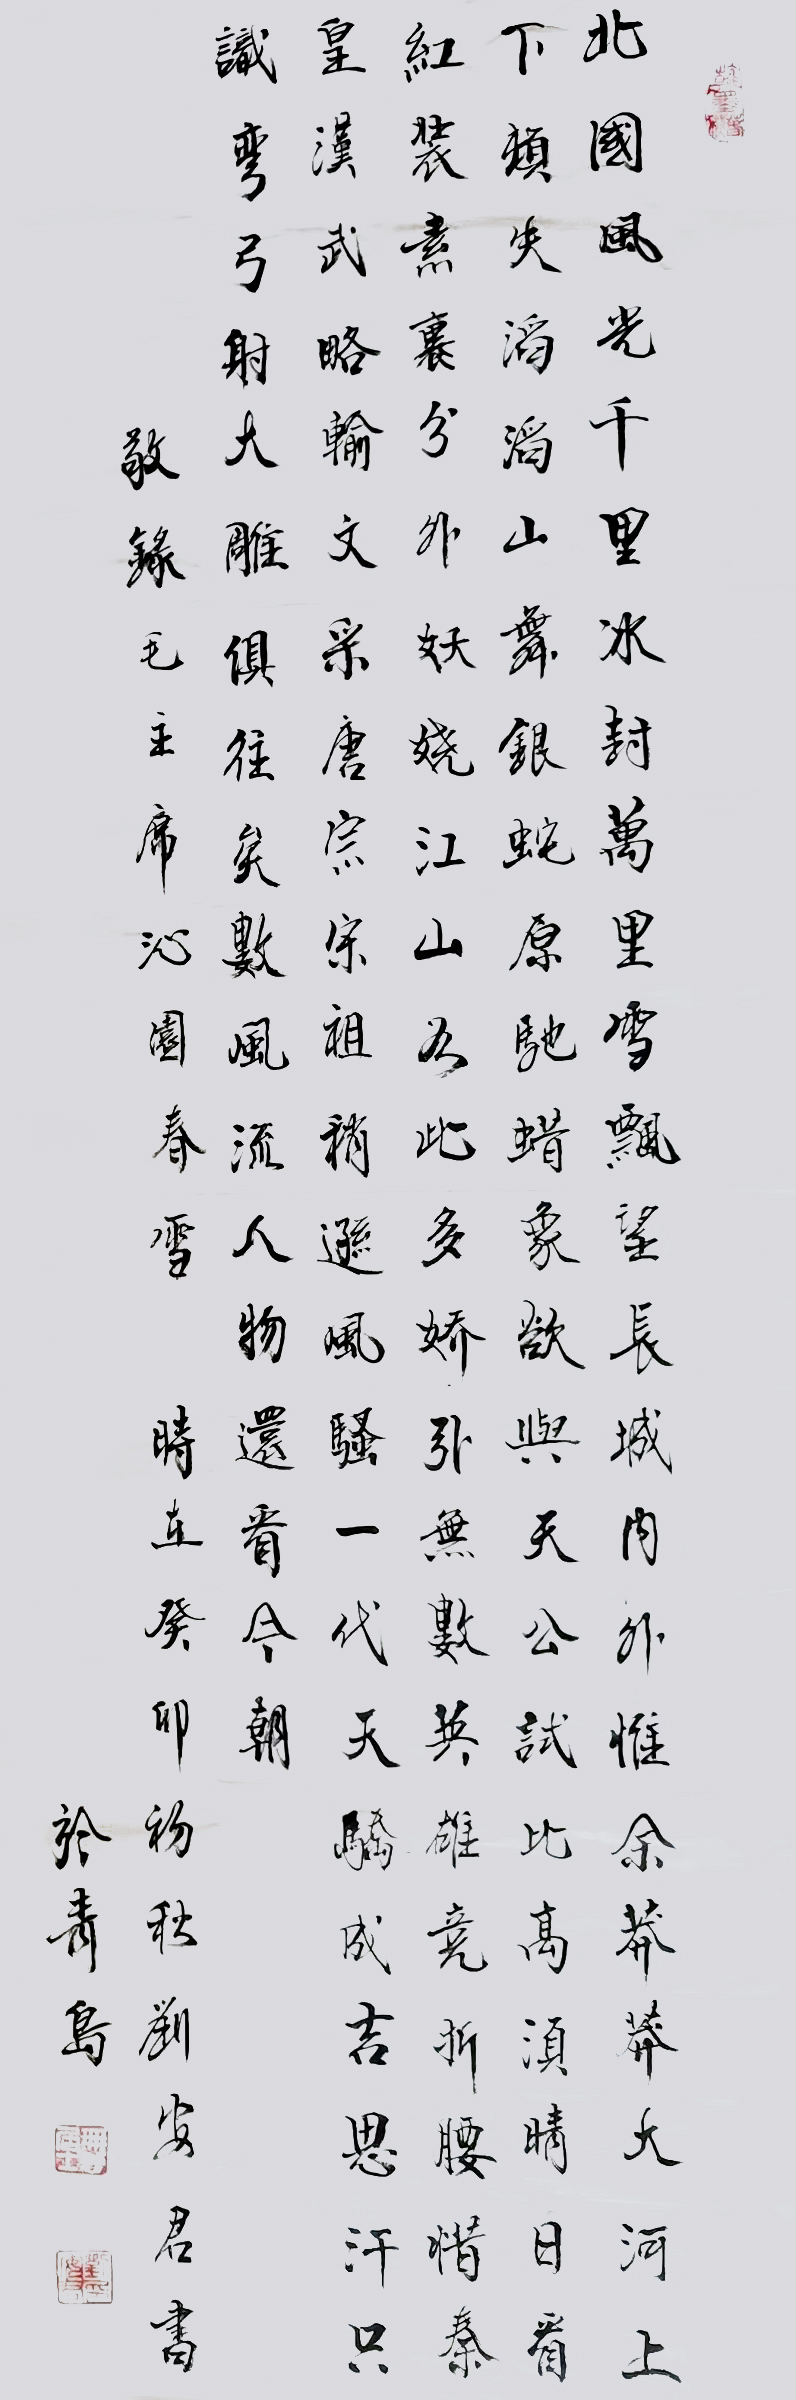 北國風光千里冰封萬里雪飄望長城内外惟余莽莽大河上
下頓失滔滔山舞銀蛇原馳蜡象欲與天公試比高須晴日看
紅裝素裹分外妖嬈江山如此多嬌引無數英雄竞折腰惜秦
皇漢武略輸文采唐宗宋祖稍遜風騷一代天驕成吉思汗只
識彎弓射大雕俱往矣數風流人物還看今朝
敬錄毛主席沁園春雪 時在癸卯初秋劉安君書
於青島